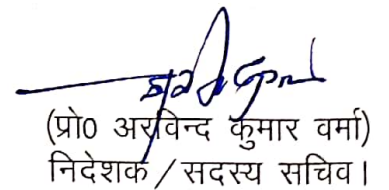 (प्रो0 अरविन्द कुमार वर्मा)
निदेशक / सदस्य सचिव।